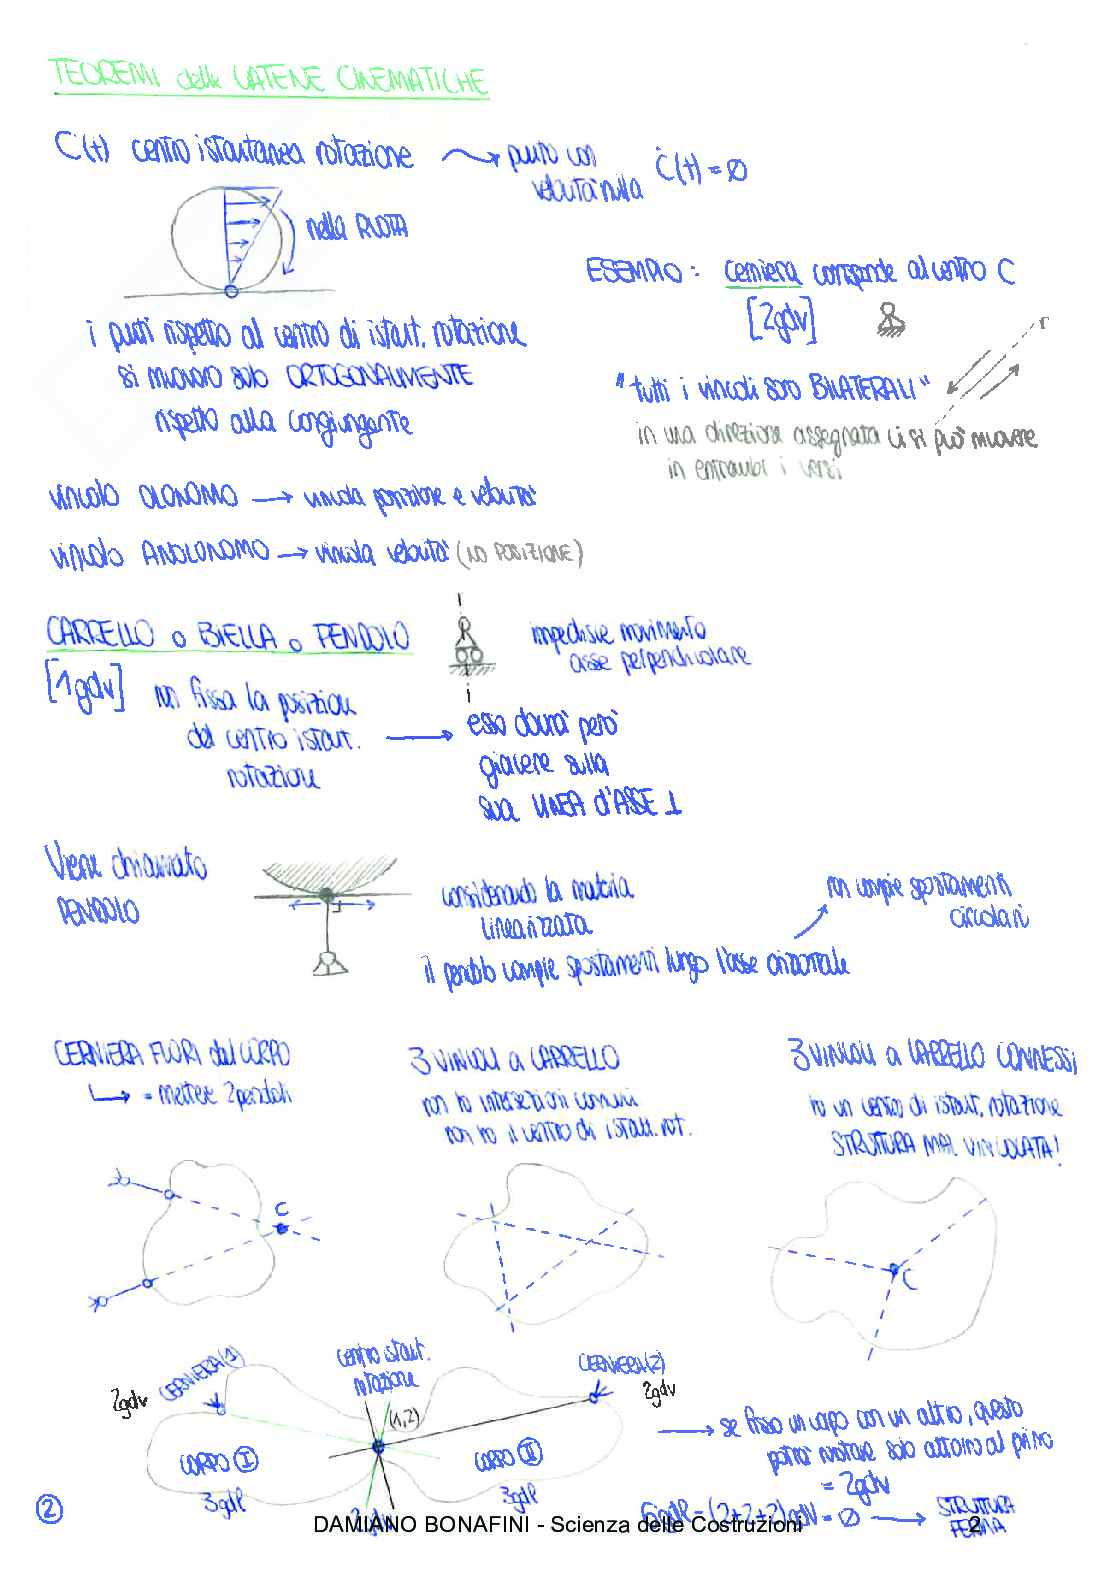 TEOREMI delle CATENE CINEMATICHE
C(t) centro istantanea rotazione
punto con
velocità nulla
Ċ(t) = ∅
nella RUOTA
ESEMPIO : cerniera corrisponde al centro C
[2gdv]
i punti rispetto al centro di istant. rotazione
si muovono solo ORTOGONALMENTE
rispetto alla congiungente
r
"tutti i vincoli sono BILATERALI"
in una direzione assegnata ci si può muovere
in entrambi i versi
vincolo OLONOMO → vincola posizione e velocità
vincolo ANOLONOMO → vincola velocità (NO POSIZIONE)
CARRELLO o BIELLA o PENDOLO
[1gdv]
impedisce movimento
asse perpendicolare
non fissa la posizione
del centro istant.
rotazione
esso dovrà però
giacere sulla
sua LINEA D'ASSE ⊥
Viene chiamato
PENDOLO
considerando la materia
linearizzata
il pendolo compie spostamenti lungo l'asse orizzontale
non compie spostamenti
circolari
CERNIERA FUORI dal CORPO
↳ = mettere 2 pendoli
3 VINCOLI a CARRELLO
non ho intersezioni comuni
non ho il centro di istant. rot.
3 VINCOLI a CARRELLO CONNESSI
ho un centro di istant. rotazione
STRUTTURA MAL VINCOLATA!
C
C
2gdv
CERNIERA (1)
centro istant.
rotazione
(1,2)
CERNIERA (2)
2gdv
CORPO I
3gdl
CORPO II
3gdl
2gdv
→ se fisso un corpo con un altro, questo
potrà ruotare solo attorno al primo
= 2gdv
6gdl - (2+2+2)gdv = ∅ → STRUTTURA
FERMA
2
DAMIANO BONAFINI - Scienza delle Costruzioni
2